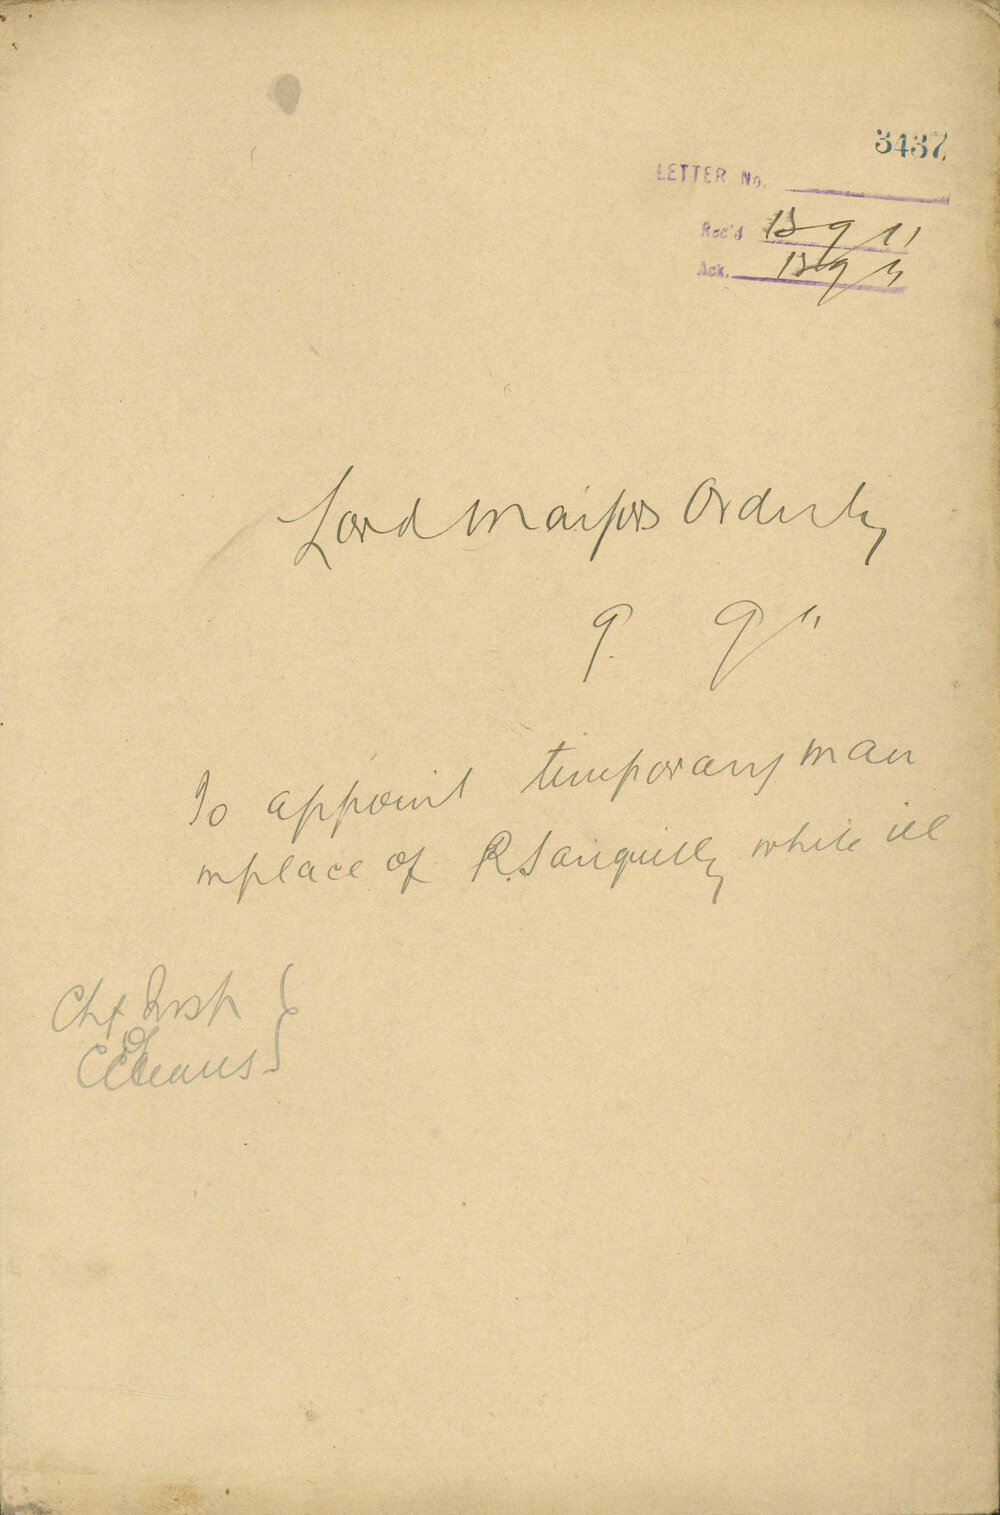 3437
LETTER No.
Rec'd 13 9 11
Ack. 13 9 11
Lord Mayors Orderly
9. 9 11
To appoint temporary man
in place of R. Sanquilly while ill
Chf Insp
of
C Cleaners